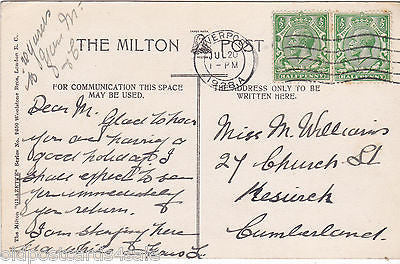 THE MILTON POST
LIVERPOOL
JUL 20
1 - PM
HALFPENNY
HALFPENNY
FOR COMMUNICATION THIS SPACE
MAY BE USED.
THE ADDRESS ONLY TO BE
WRITTEN HERE.
Dear M. Glad to hear
you are having a
good holiday. I
shall expect to see
you immediately
you return.
I am staying here
a while
Miss M. Williams
27 Church St
Keswick
Cumberland.
The Milton "GLAZETTE" Series No. Woolstone Bros., London E.C.
stgpostcards4sale